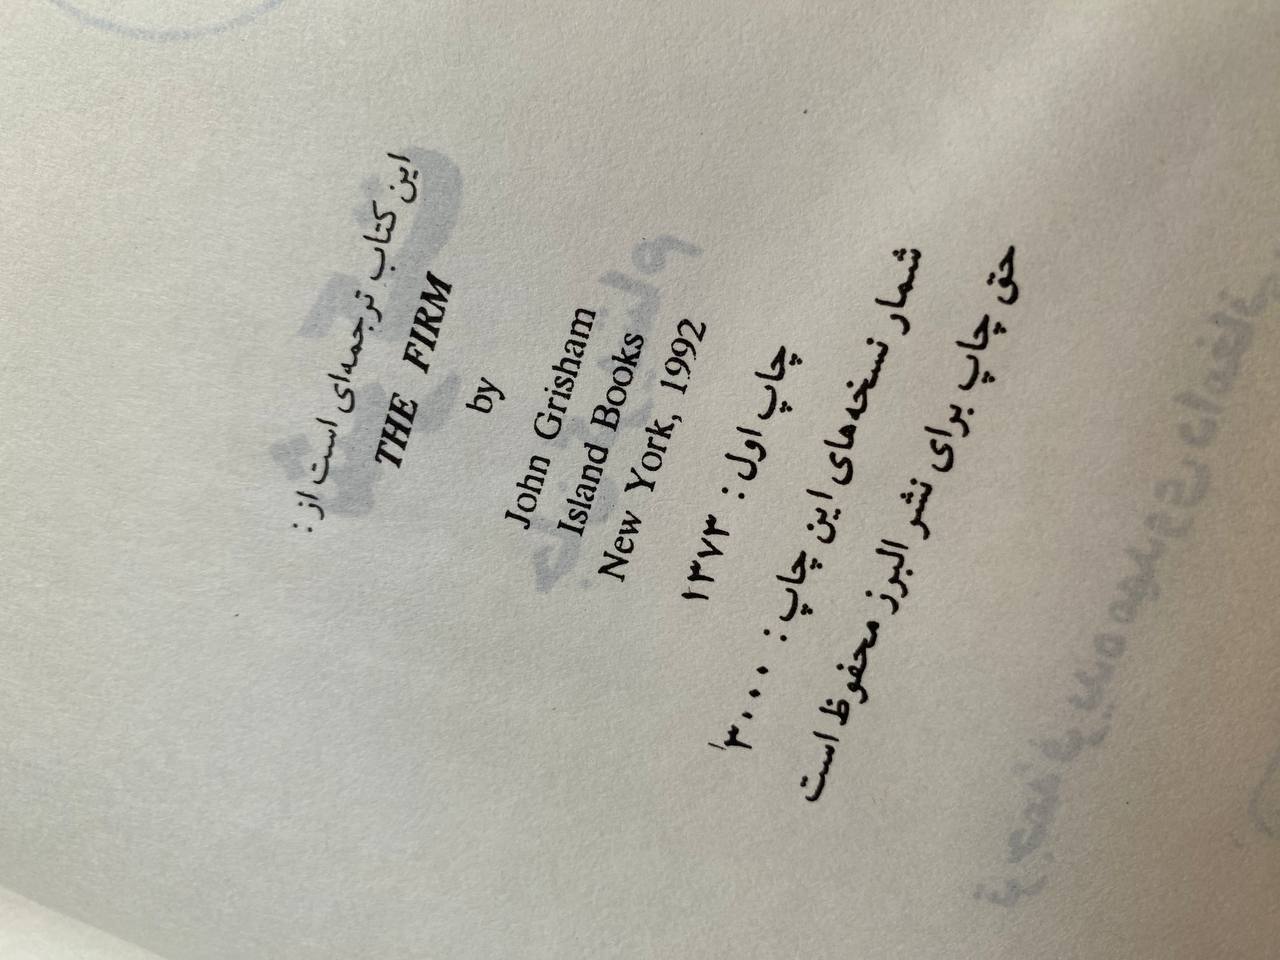 این کتاب ترجمه‌ای است از :
THE FIRM
by
John Grisham
Island Books
New York, 1992
چاپ اول : ۱۳۷۳
شمار نسخه‌های این چاپ : ۳۰۰۰
حق چاپ برای نشر البرز محفوظ است